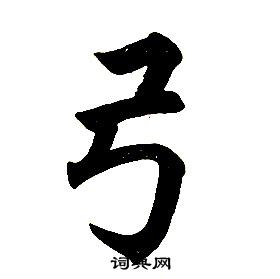 弓
词典网